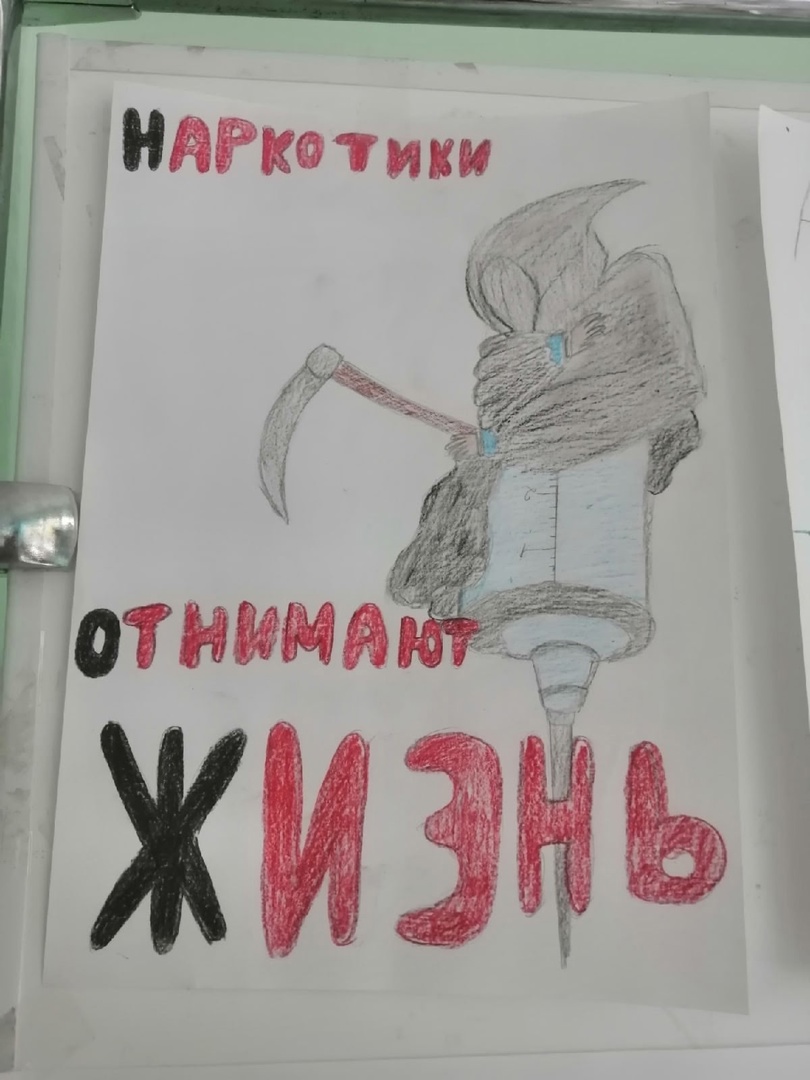 НАРКОТИКИ
ОТНИМАЮТ
ЖИЗНЬ